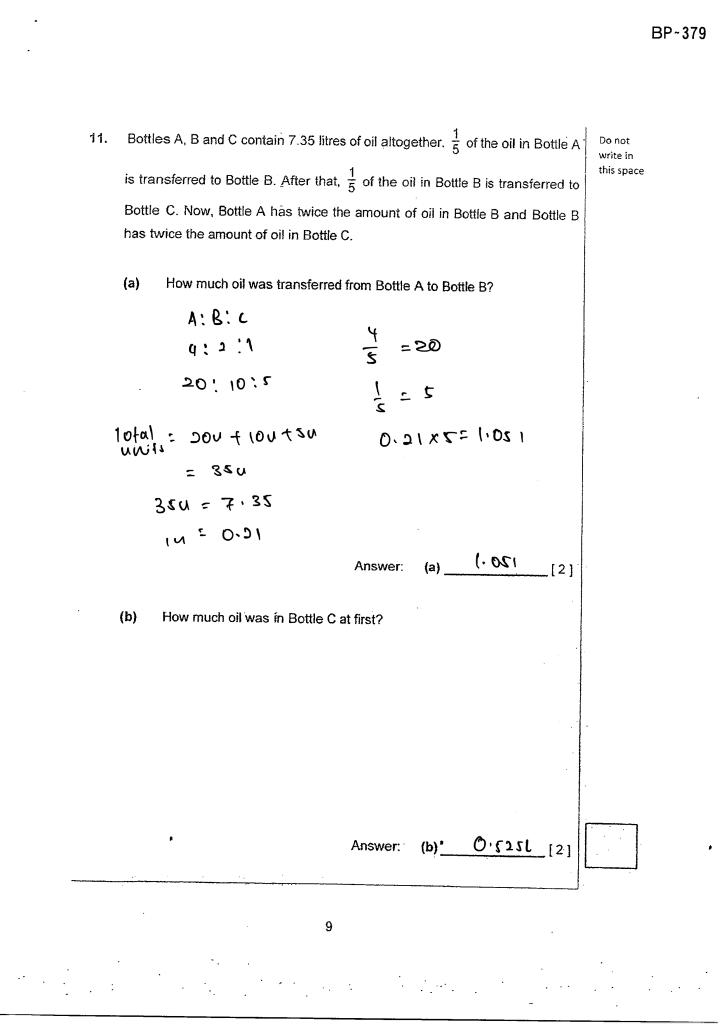 BP-379
11. Bottles A, B and C contain 7.35 litres of oil altogether. 1/5 of the oil in Bottle A
is transferred to Bottle B. After that, 1/5 of the oil in Bottle B is transferred to
Bottle C. Now, Bottle A has twice the amount of oil in Bottle B and Bottle B
has twice the amount of oil in Bottle C.
Do not
write in
this space
(a) How much oil was transferred from Bottle A to Bottle B?
A : B : C
4 : 2 : 1
20 : 10 : 5
Total units = 20u + 10u + 5u
= 35u
35u = 7.35
1u = 0.21
4/5 = 20
1/5 = 5
0.21 x 5 = 1.05l
Answer: (a) 1.05l [2]
(b) How much oil was in Bottle C at first?
Answer: (b) 0.525l [2]
9